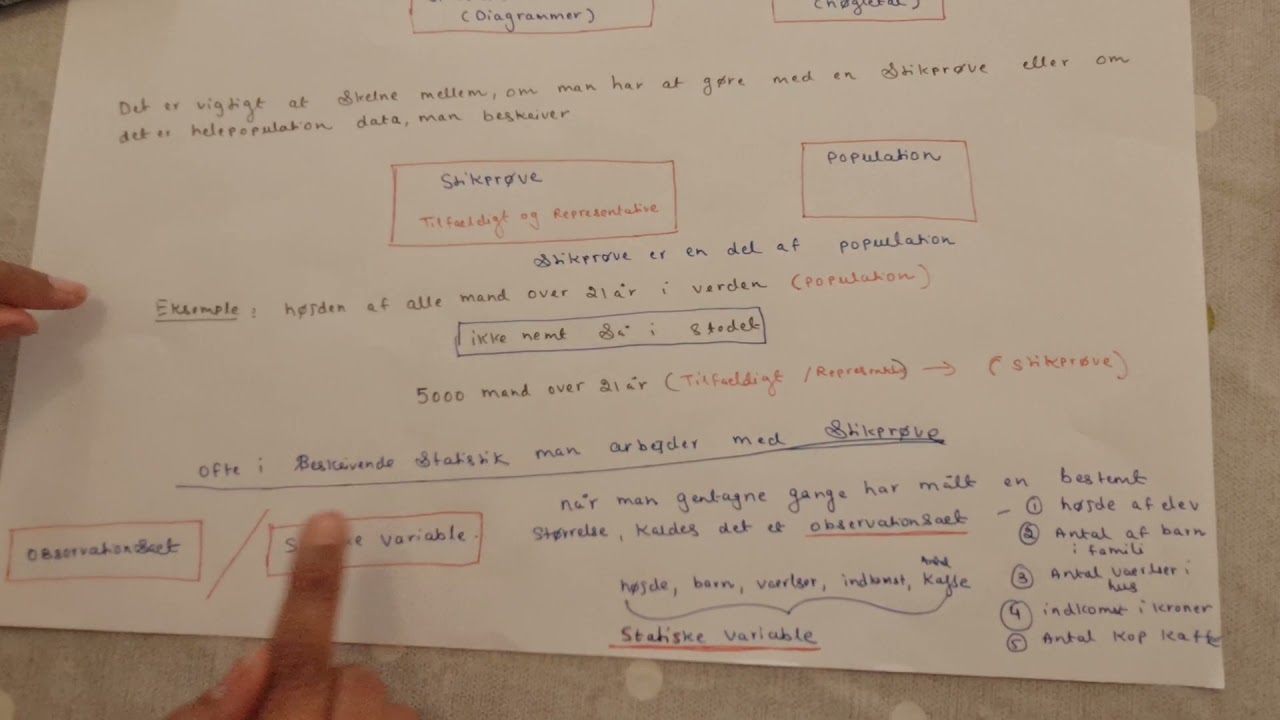 (Diagrammer)
Det er vigtigt at skelne mellem, om man har at gøre med en stikprøve eller om
det er helepopulation data, man beskeiver
Stikprøve
Tilfaeldigt og Representative
population
Stikprøve er en del af popullation
Eksemple : højden af alle mand over 21 år i verden (population)
ikke nemt så i stedet
5000 mand over 21 år (Tilfaeldigt / → (stikprøve)
ofte i Beskeivende Statistik man arbejder med Stikprøve
når man gentagne gange har målt en bestemt
størrelse, kaldes det et observationsaet
observationsaet
variable.
① højde af elev
② Antal af barn
i famili
③ Antal vaerlser i
hus
④ indkomst i kroner
⑤ Antal kop kaffe
Antal
højde, barn, vaerlser, indkomst, kaffe
Statiske variable